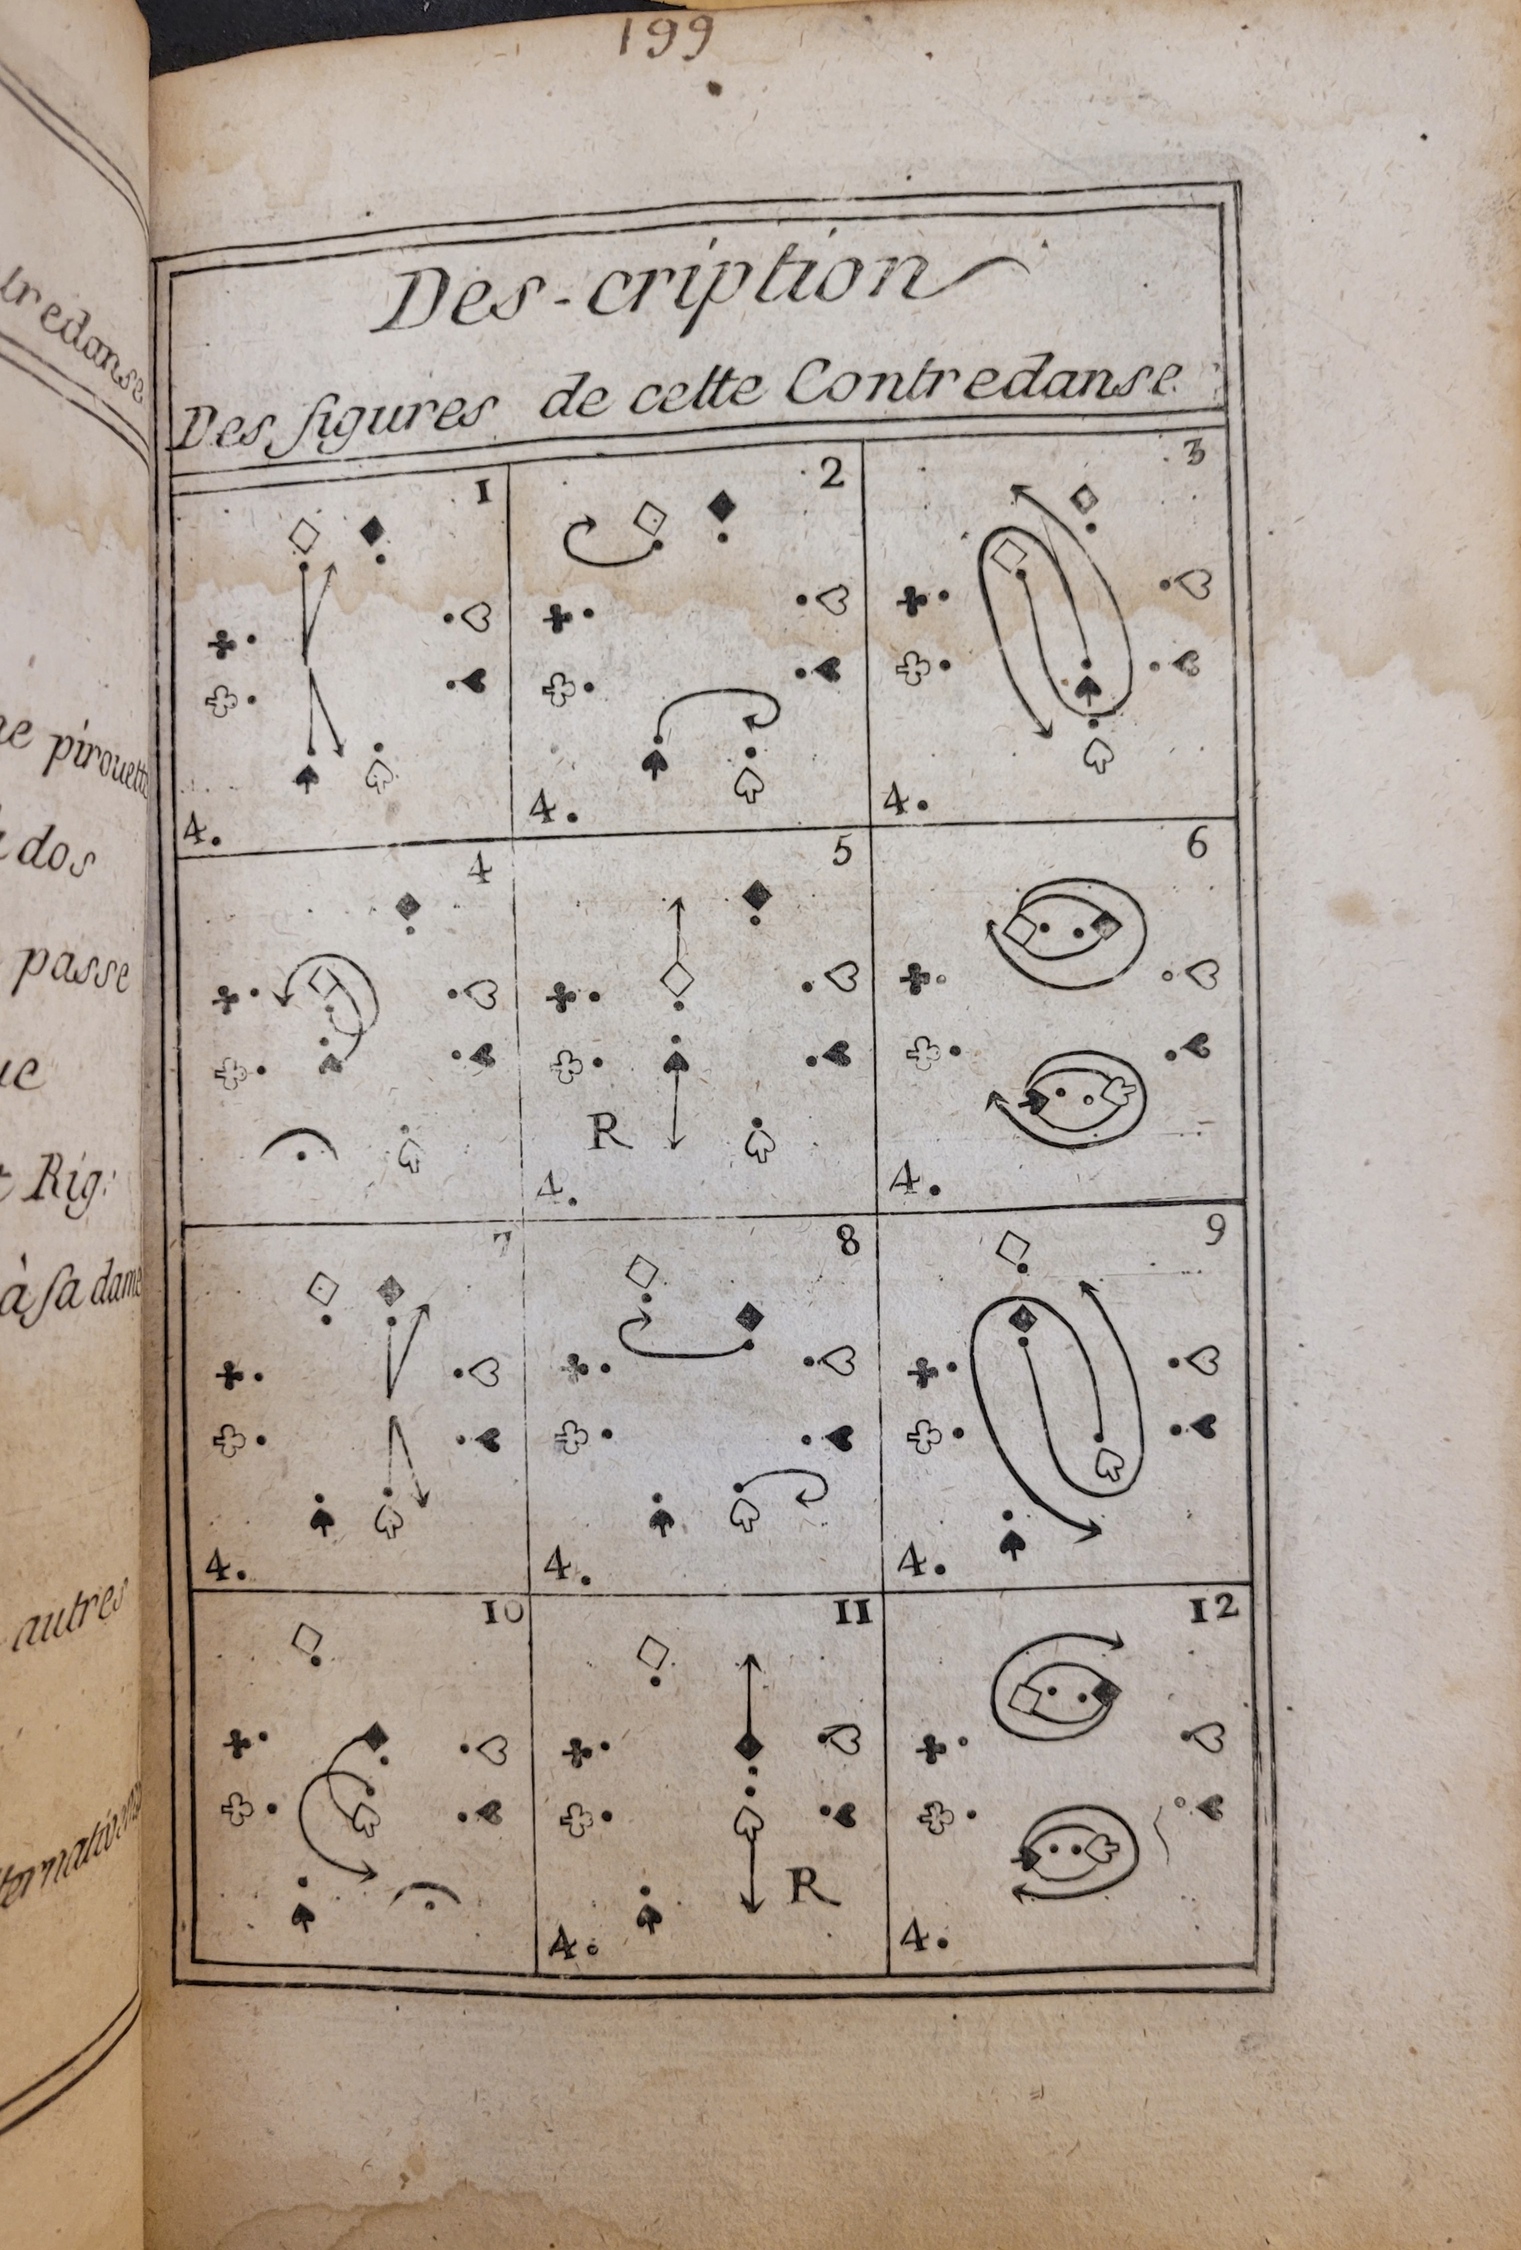 199
Des-cription
Des figures de cette Contredanse
1
2
3
4.
4.
4.
4
5
6
R
4.
4.
7
8
9
4.
4.
4.
10
11
12
R
4.
4.
tredanse
pirouette
dos
passe
Rig:
à sa dame
autres